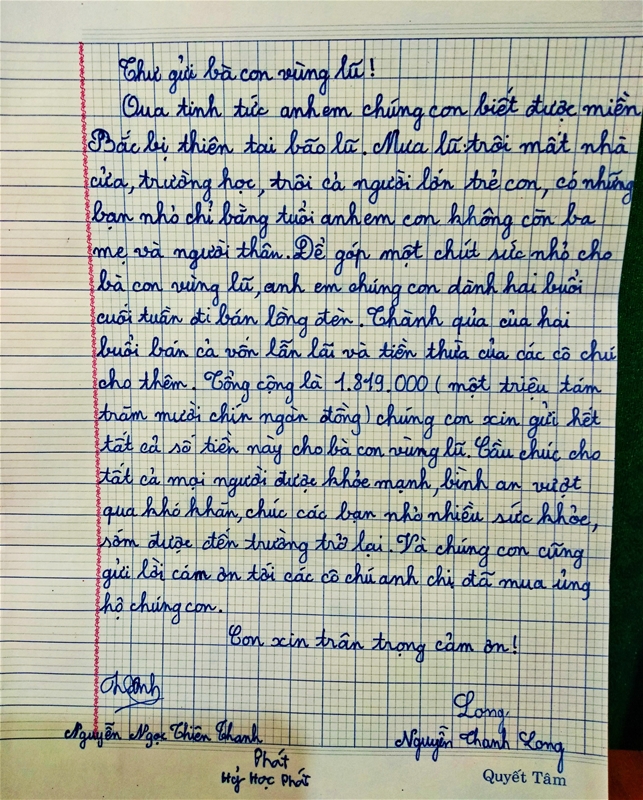 Thư gửi bà con vùng lũ!
Qua tinh tức anh em chúng con biết được miền
Bắc bị thiên tai bão lũ. Mưa lũ trôi mất nhà
cửa, trường học, trôi cả người lớn trẻ con, có những
bạn nhỏ chỉ bằng tuổi anh em con không còn ba
mẹ và người thân. Để góp một chút sức nhỏ cho
bà con vùng lũ, anh em chúng con dành hai buổi
cuối tuần đi bán lồng đèn. Thành quả của hai
buổi bán cả vốn lẫn lãi và tiền thừa của các cô chú
cho thêm. Tổng cộng là 1.819.000 (một triệu tám
trăm mười chín ngàn đồng) chúng con xin gửi hết
tất cả số tiền này cho bà con vùng lũ. Cầu chúc cho
tất cả mọi người được khỏe mạnh, bình an vượt
qua khó khăn, chúc các bạn nhỏ nhiều sức khỏe,
sớm được đến trường trở lại. Và chúng con cũng
gửi lời cám ơn tới các cô chú anh chị đã mua ủng
hộ chúng con.
Con xin trân trọng cảm ơn!
Thanh
Long
Nguyễn Ngọc Thiên Thanh
Nguyễn Thanh Long
Phát
Hỷ Học Phát
Quyết Tâm